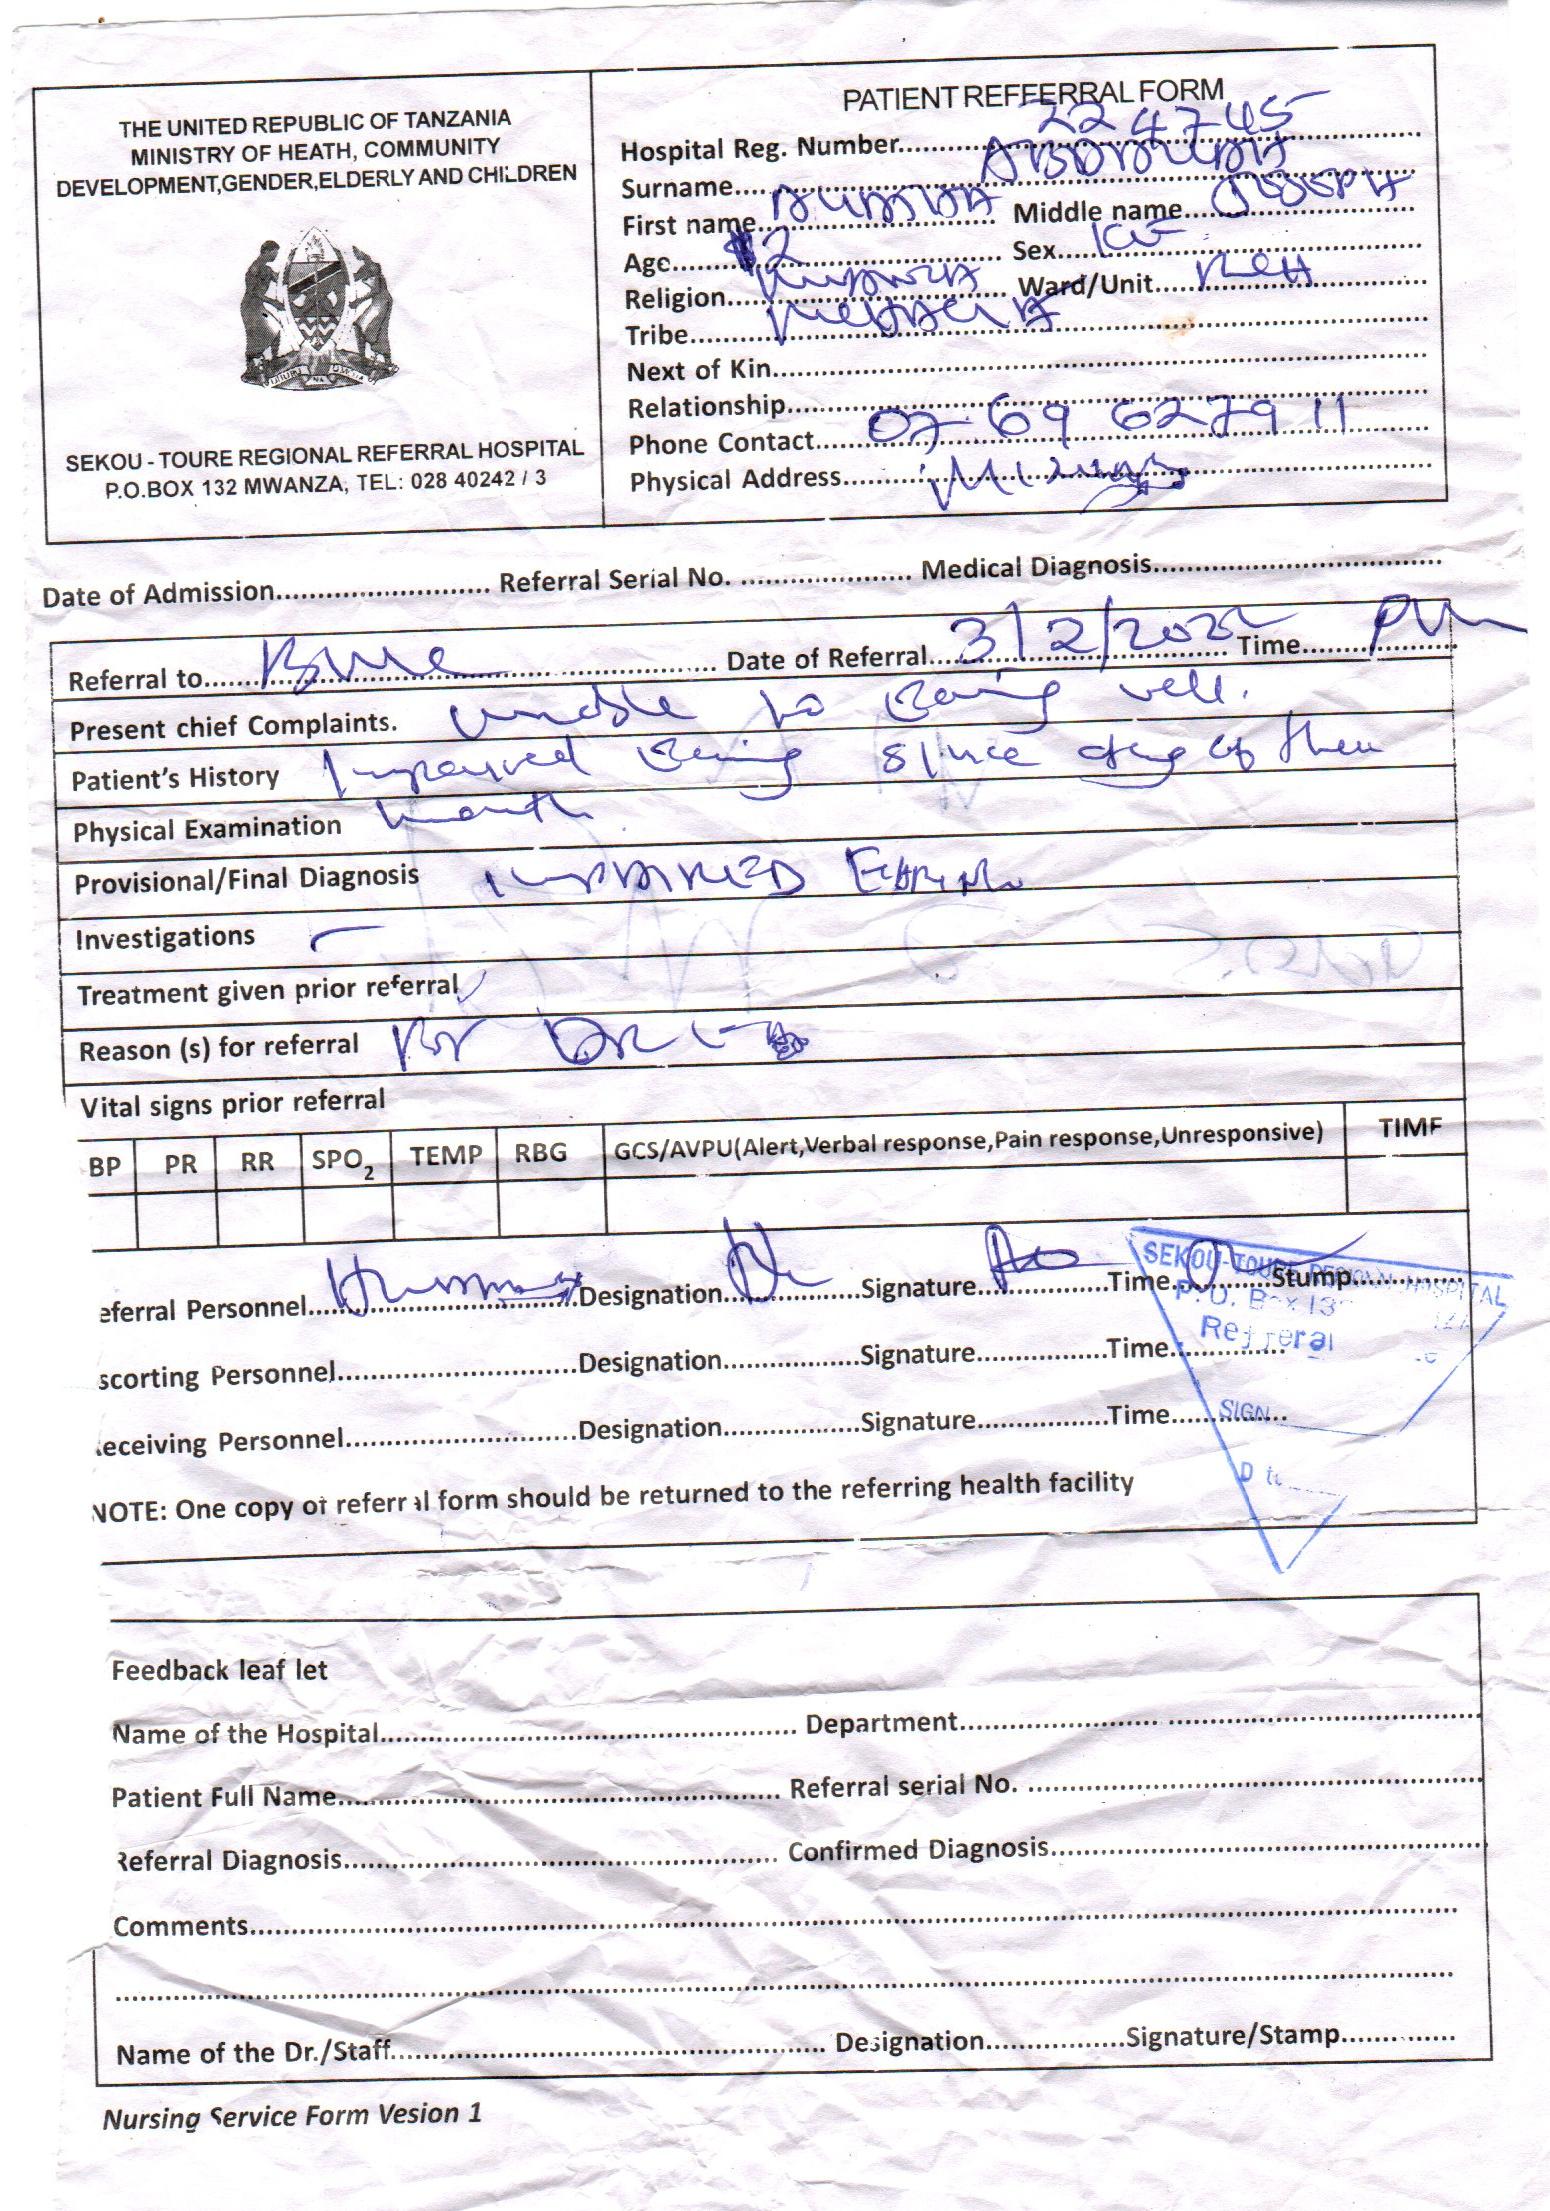 THE UNITED REPUBLIC OF TANZANIA
MINISTRY OF HEATH, COMMUNITY
DEVELOPMENT,GENDER,ELDERLY AND CHILDREN
SEKOU - TOURE REGIONAL REFERRAL HOSPITAL
P.O.BOX 132 MWANZA, TEL: 028 40242 / 3
PATIENT REFFERRAL FORM
Hospital Reg. Number 224745
Surname
First name Middle name JOSEPH
Age 2 Sex
Religion Ward/Unit
Tribe
Next of Kin
Relationship
Phone Contact 07 69 627911
Physical Address
Date of Admission Referral Serial No. Medical Diagnosis
Referral to BMC Date of Referral 3/2/2022 Time PM
Present chief Complaints. unable to well.
Patient's History since of three
Physical Examination month
Provisional/Final Diagnosis IMPAIRED
Investigations
Treatment given prior referral
Reason (s) for referral for
Vital signs prior referral
BP PR RR SPO2 TEMP RBG GCS/AVPU(Alert,Verbal response,Pain response,Unresponsive) TIMF
eferral Personnel Designation Signature Time Stump
SEKOU-TOURE REGIONAL HOSPITAL
P.O. Box 13
Referral
scorting Personnel Designation Signature Time
SIGN
eceiving Personnel Designation Signature Time
NOTE: One copy of referral form should be returned to the referring health facility
Feedback leaf let
Name of the Hospital Department
Patient Full Name Referral serial No.
Referral Diagnosis Confirmed Diagnosis
Comments
Name of the Dr./Staff Designation Signature/Stamp
Nursing Service Form Vesion 1